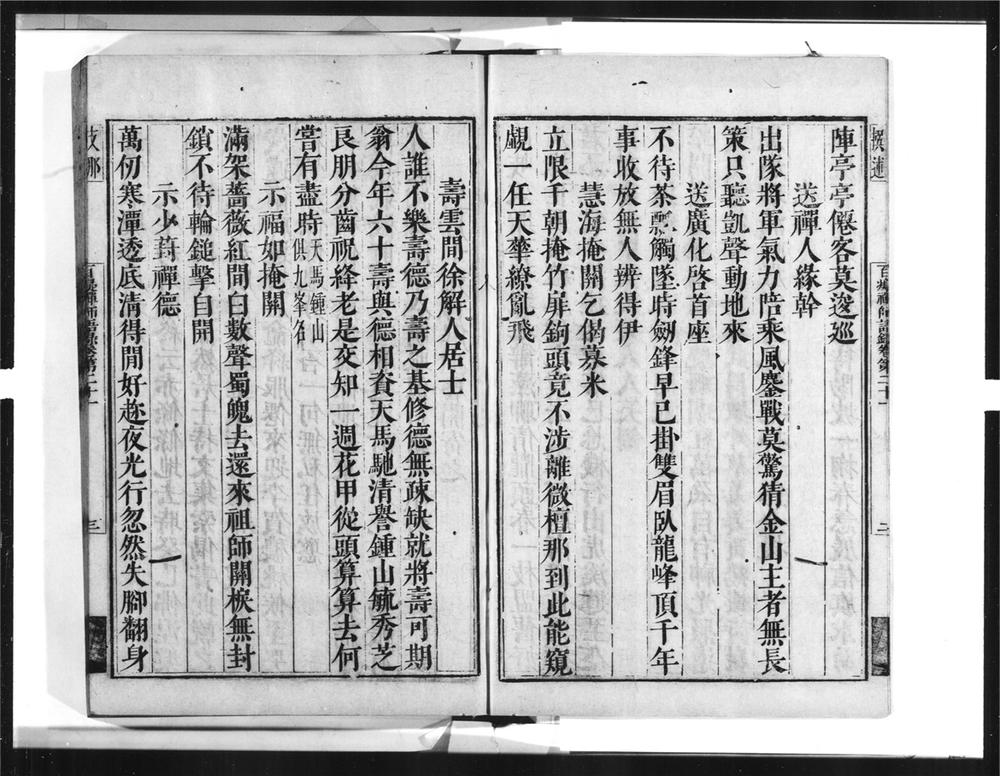 陣亭亭僊客莫逡巡
送禪人緣幹
出隊將軍氣力陪乘風鏖戰莫驚猜金山主者無長
策只聽凱聲動地來
送廣化啓首座
不待茶瓢觸墜時劒鋒早已掛雙眉臥龍峰頂千年
事收放無人辨得伊
慧海掩關乞偈募米
立限千朝掩竹扉鉤頭竟不涉離微檀那到此能窺
覷一任天華繚亂飛
壽雲間徐解人居士
人誰不樂壽德乃壽之基修德無疎缺就將壽可期
翁今年六十壽與德相資天馬馳清譽鍾山毓秀芝
良朋分齒祝絳老是交知一週花甲從頭算算去何
嘗有盡時天馬鍾山
俱九峯名
示福如掩關
滿架薔薇紅間白數聲蜀魄去還來祖師關棙無封
鎖不待輪鎚擊自開
示少葑禪德
萬仞寒潭透底清得閒好趂夜光行忽然失腳翻身
百癡禪師語錄卷第二十一
三